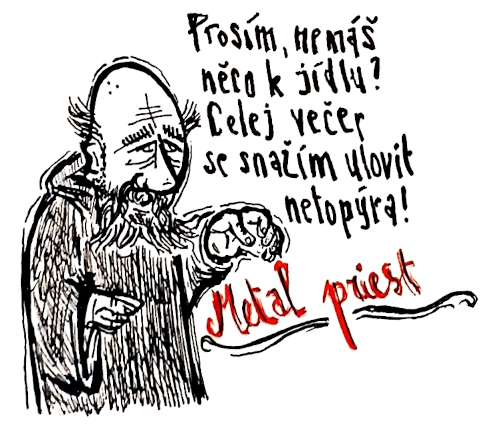 Prosím, nemáš
něco k jídlu?
Celej večer
se snažím ulovit
netopýra!
Metal priest